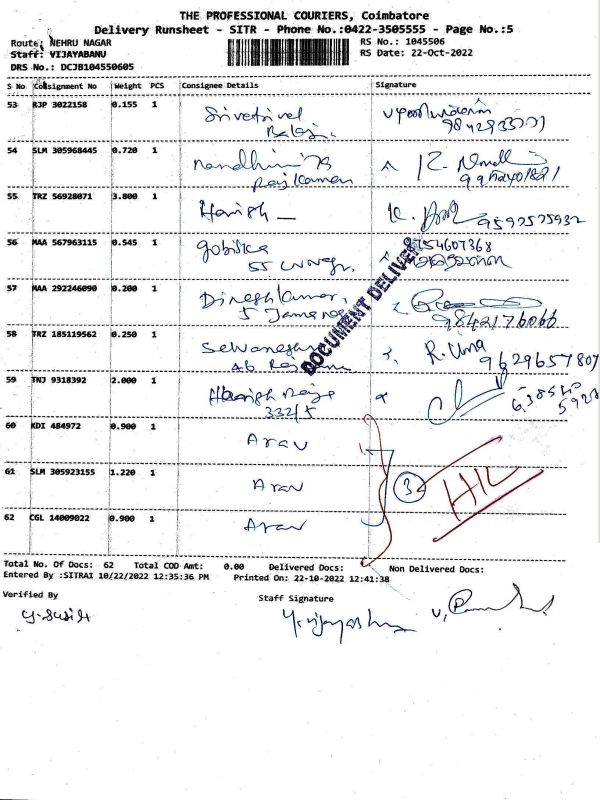 THE PROFESSIONAL COURIERS, Coimbatore
Delivery Runsheet - SITR - Phone No.:0422-3505555 - Page No.:5
Route: NEHRU NAGAR RS No.: 1045506
Staff: VIJAYABANU RS Date: 22-Oct-2022
DRS No.: DCJB104550605
S No Consignment No Weight PCS Consignee Details Signature
53 RJP 3022158 0.155 1
54 SLM 305968445 0.720 1 Nandhini
Rajkumar
55 TRZ 56928071 3.800 1 Harish K. 9597575932
56 MAA 567963115 0.545 1 gobika
55
57 MAA 292246090 0.200 1 Dinesh Kumar,
5 9842176066
58 TRZ 185119562 0.250 1 R. Uma
9629657807
59 TNJ 9318392 2.000 1 Harish
332/5
60 KDI 484972 0.900 1 Arav
61 SLM 305923155 1.220 1 Arav 3 HK
62 CGL 14009022 0.900 1 Arav
DOCUMENT DELIVER
Total No. Of Docs: 62 Total COD Amt: 0.00 Delivered Docs: Non Delivered Docs:
Entered By :SITRAI 10/22/2022 12:35:36 PM Printed On: 22-10-2022 12:41:38
Verified By Staff Signature